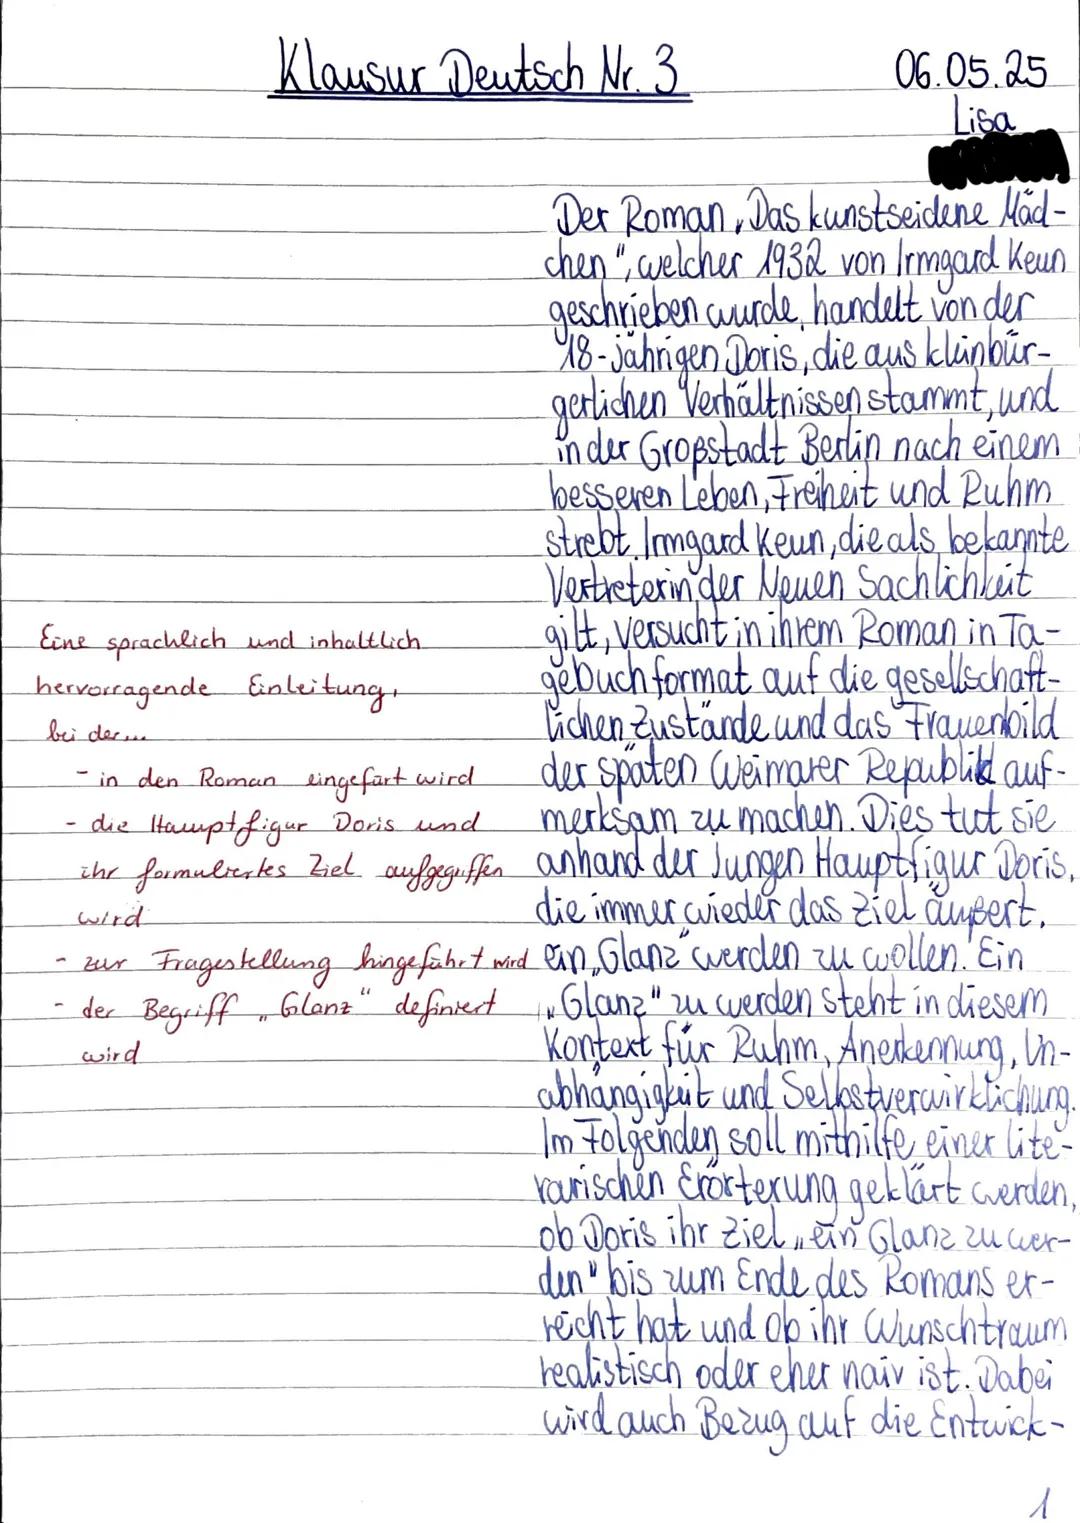 Klausur Deutsch Nr. 3
06.05.25
Lisa
Der Roman „Das kunstseidene Mäd-
chen", welcher 1932 von Irmgard Keun
geschrieben wurde, handelt von der
18-jährigen Doris, die aus kleinbür-
gerlichen Verhältnissen stammt, und
in der Großstadt Berlin nach einem
besseren Leben, Freiheit und Ruhm
strebt. Irmgard Keun, die als bekannte
Vertreterin der Neuen Sachlichkeit
gilt, versucht in ihrem Roman in Ta-
gebuchformat auf die gesellschaft-
lichen Zustände und das Frauenbild
der späten Weimarer Republik auf-
merksam zu machen. Dies tut sie
anhand der jungen Hauptfigur Doris,
die immer wieder das Ziel äußert,
ein „Glanz" werden zu wollen. Ein
„Glanz" zu werden steht in diesem
Kontext für Ruhm, Anerkennung, Un-
abhängigkeit und Selbstverwirklichung.
Im Folgenden soll mithilfe einer lite-
rarischen Erörterung geklärt werden,
ob Doris ihr Ziel „ein Glanz zu wer-
den" bis zum Ende des Romans er-
reicht hat und ob ihr Wunschtraum
realistisch oder eher naiv ist. Dabei
wird auch Bezug auf die Entwick-
Eine sprachlich und inhaltlich
hervorragende Einleitung,
bei der...
- in den Roman eingefürt wird
- die Hauptfigur Doris und
ihr formuliertes Ziel aufgegriffen
wird
- zur Fragestellung hingeführt wird
- der Begriff „Glanz" definiert
wird
1